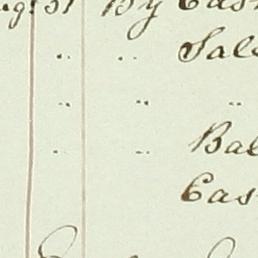 ug. 31 By Cas
" " Sal
" " "
" " Bal
Cas